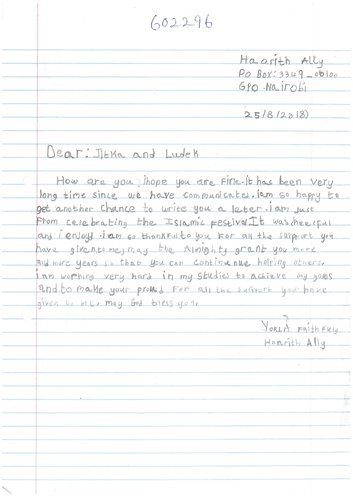 602296
Haarith Ally
P.o Box: 3349_00100
GPO Nairobi
25/8/2018)
Dear: Jitka and Ludek
How are you, ihope you are Fine.It has been very
long time since we have communicated. iam so happy to
get another Chance to write you a letter. iam just
From celebrating the Islamic Festival It was cheerful
and i enjoy. iam so thankful to you For all the support you
have given to me, may the Almighty grant you more
and more years so that you can continue helping others.
iam working very hard in my studies to achieve my goals
and to make your proud For all the support you have
given to me. may God bless you.
Yours Faithfully
Haarith Ally